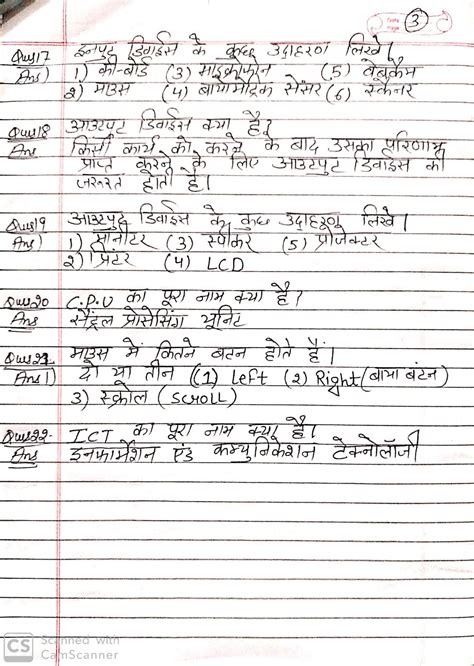 3
Ques17 इनपुट डिवाईस के कुछ उदाहरण लिखे।
Ans) 1) की-बोर्ड (3) माइक्रोफोन (5) वेबकैम
2) माउस (4) बायोमैट्रिक सेंसर (6) स्कैनर
Ques18 आउटपुट डिवाईस क्या है?
Ans किसी कार्य को करने के बाद उसका परिणाम
प्राप्त करने के लिए आउटपुट डिवाईस की
जरूरत होती है।
Ques19 आउटपुट डिवाईस के कुछ उदाहरण लिखे।
Ans) 1) मॉनीटर (3) स्पीकर (5) प्रोजेक्टर
2) प्रिंटर (4) LCD
Ques20 C.P.U का पूरा नाम क्या है?
Ans सैंट्रल प्रोसेसिंग यूनिट
Ques21 माउस में कितने बटन होते हैं।
Ans1) दो या तीन (1) Left (2) Right (बाया बंटन)
3) स्क्रोल (SCROLL)
Ques22- ICT का पूरा नाम क्या है।
Ans इनफार्मेशन एंड कम्युनिकेशन टेक्नोलॉजी
CS Scanned with
CamScanner